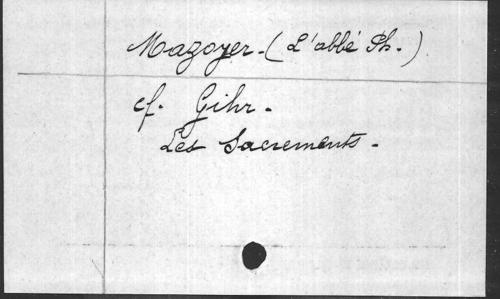 Mazoyer. (L'abbé Ph.)
cf. Gihr.
Les Sacrements.